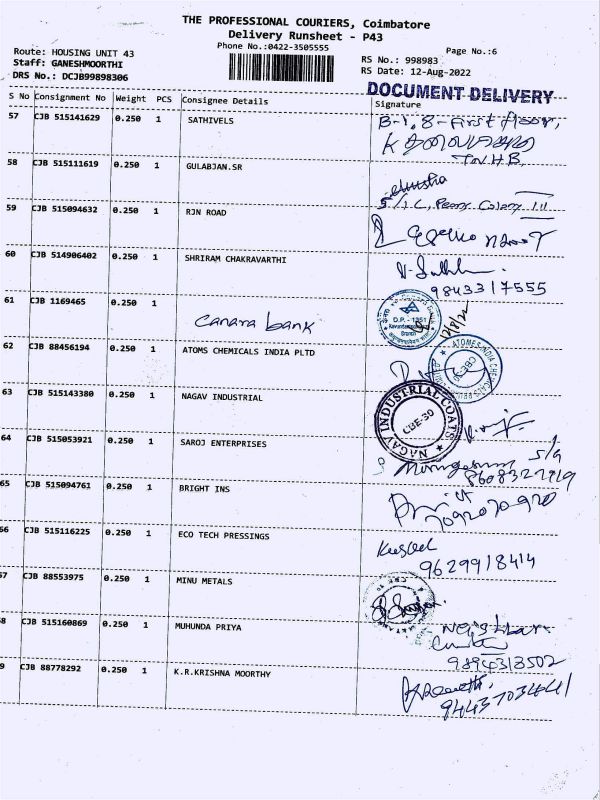 THE PROFESSIONAL COURIERS, Coimbatore
Delivery Runsheet - P43
Phone No.:0422-3505555
Page No.:6
Route: HOUSING UNIT 43
Staff: GANESHMOORTHI
DRS No.: DCJB99898306
RS No.: 998983
RS Date: 12-Aug-2022
DOCUMENT DELIVERY
S No Consignment No Weight PCS Consignee Details Signature
57 CJB 515141629 0.250 1 SATHIVELS B-1, 8-First floor,
TNHB
58 CJB 515111619 0.250 1 GULABJAN.SR
59 CJB 515094632 0.250 1 RJN ROAD
60 CJB 514906402 0.250 1 SHRIRAM CHAKRAVARTHI
9843317555
61 CJB 1169465 0.250 1
Canara bank
D.P.-1351
12/8/22
62 CJB 88456194 0.250 1 ATOMS CHEMICALS INDIA PLTD
CBE-30
63 CJB 515143380 0.250 1 NAGAV INDUSTRIAL
NAGAV INDUSTRIAL COATS
CBE-30
64 CJB 515053921 0.250 1 SAROJ ENTERPRISES
65 CJB 515094761 0.250 1 BRIGHT INS
66 CJB 515116225 0.250 1 ECO TECH PRESSINGS
9629918414
67 CJB 88553975 0.250 1 MINU METALS
68 CJB 515160869 0.250 1 MUHUNDA PRIYA
9894313502
69 CJB 88778292 0.250 1 K.R.KRISHNA MOORTHY